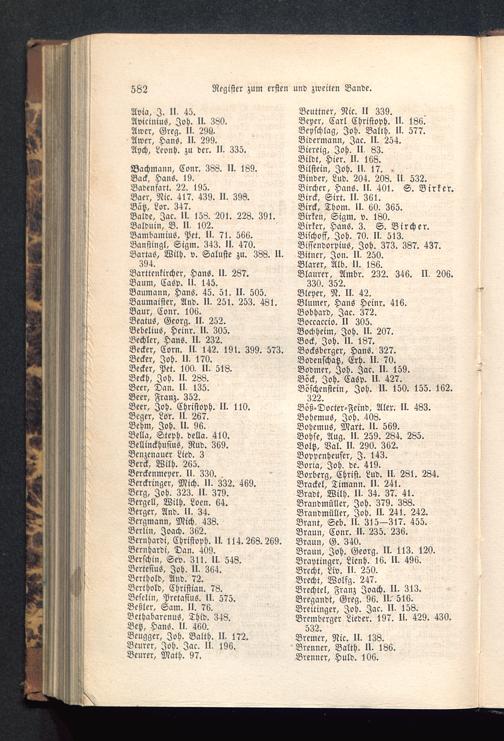 582
Register zum ersten und zweiten Bande.
Avia, J. II. 45.
Avicinius, Joh. II. 380.
Awer, Greg. II. 290.
Awer, Hans. II. 299.
Aych, Leonh. zu der. II. 335.
Bachmann, Conr. 388. II. 189.
Back, Hans. 19.
Badenfart. 22. 195.
Baer, Nic. 417. 439. II. 398.
Bätz, Lor. 347.
Balde, Jac. II. 158. 201. 228. 391.
Balduin, B. II. 102.
Bambamius, Pet. II. 71. 566.
Banstingl, Sigm. 343. II. 470.
Bartas, Wilh. v. Saluste zu. 388. II.
394.
Barttenkircher, Hans. II. 287.
Baum, Casp. II. 145.
Baumann, Hans. 45. 51. II. 505.
Baumaister, And. II. 251. 253. 481.
Baur, Conr. 106.
Beatus, Georg. II. 252.
Bebelius, Heinr. II. 305.
Bechler, Hans. II. 232.
Becker, Corn. II. 142. 191. 399. 573.
Becker, Joh. II. 170.
Becker, Pet. 100. II. 518.
Beckh, Joh. II. 288.
Beer, Dan. II. 135.
Beer, Franz. 352.
Beer, Joh. Christoph. II. 110.
Beger, Lor. II. 267.
Behm, Joh. II. 96.
Bella, Steph. della. 410.
Bellinckhusius, Rud. 369.
Benzenauer Lied. 3
Berck, Wilh. 265.
Berckenmeyer. II. 330.
Berckringer, Mich. II. 332. 469.
Berg, Joh. 323. II. 379.
Bergell, Wilh. Loen. 64.
Berger, And. II. 34.
Bergmann, Mich. 438.
Berlin, Joach. 362.
Bernhardi, Christoph. II. 114. 268. 269.
Bernhardi, Dan. 409.
Berschin, Sev. 311. II. 548.
Bertesius, Joh. II. 364.
Berthold, And. 72.
Berthold, Christian. 78.
Beselin, Pretasius. II. 575.
Beßler, Sam. II. 76.
Bethabarenus, Thib. 348.
Betz, Hans. II. 460.
Beugger, Joh. Balth. II. 172.
Beurer, Joh. Jac. II. 196.
Beurer, Math. 97.
Beuttner, Nic. II 339.
Beyer, Carl Christoph. II. 186.
Beyschlag, Joh. Balth. II. 577.
Bidermann, Jac. II. 254.
Biereig, Joh. II. 83.
Bildt, Hier. II. 168.
Bilstein, Joh. II. 17.
Binder, Lud. 204. 208. II. 532.
Bircher, Hans. II. 401. S. Birker.
Birck, Sixt. II. 361.
Birck, Thom. II. 60. 365.
Birken, Sigm. v. 180.
Birker, Hans. 3. S. Bircher.
Bischoff, Joh. 70. II. 513.
Bissendorpius, Joh. 373. 387. 437.
Bitner, Jon. II. 250.
Blarer, Alb. II. 186.
Blaurer, Ambr. 232. 346. II. 206.
330. 352.
Bleyer, N. II. 42.
Blumer, Hans Heinr. 416.
Bobhard, Jac. 372.
Boccaccio. II 305.
Bochheim, Joh. II. 207.
Bock, Joh. II. 187.
Bocksberger, Hans. 327.
Bodenschatz, Erh. II. 70.
Bodmer, Joh. Jac. II. 159.
Böck, Joh. Casp. II. 427.
Böschenstein, Joh. II. 150. 155. 162.
322.
Böß-Docter-Feind, Aler. II. 483.
Bohemus, Joh. 408.
Bohemus, Mart. II. 569.
Bohse, Aug. II. 259. 284. 285.
Boltz, Val. II. 290. 362.
Boppenheuser, J. 143.
Boria, Joh. de. 419.
Boxberg, Christ. Lud. II. 281. 284.
Brackel, Timann. II. 241.
Bradt, Wilh. II. 34. 37. 41.
Brandmüller, Joh. 379. 388.
Brandmüller, Joh. II. 241. 242.
Brant, Seb. II. 315—317. 455.
Braun, Conr. II. 235. 236.
Braun, G. 340.
Braun, Joh. Georg. II. 113. 120.
Braytinger, Lienh. 16. II. 496.
Brecht, Liv. II. 250.
Brecht, Wolfg. 247.
Brechtel, Franz Joach. II. 313.
Bregandt, Greg. 96. II. 516.
Breitinger, Joh. Jac. II. 158.
Bremberger Lieder. 197. II. 429. 430.
532.
Bremer, Nic. II. 138.
Brenner, Balth. II. 186.
Brenner, Huld. 106.